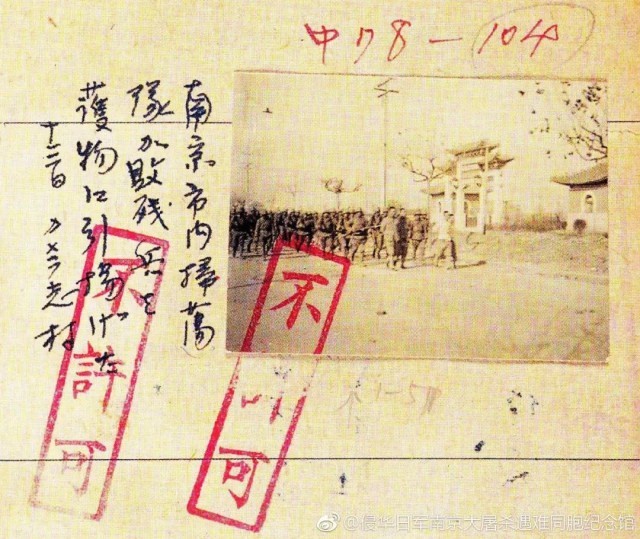 中78-104
南京市内掃蕩
隊が敗残兵を
獲物に引揚げた
志村
不許可
不許可
@侵华日军南京大屠杀遇难同胞纪念馆